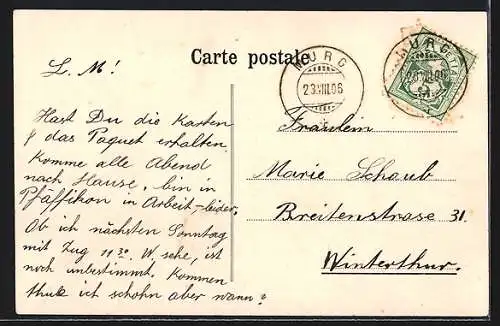 Carte postale
MURG
23.VIII.06
MURG
23.VIII.06
HELVETIA
L. M!
Hast Du die Karten
& das Paquet erhalten.
Komme alle Abend
nach Hause, bin in
Pfäffikon in Arbeit, leider.
Ob ich nächsten Sonntag
mit Zug 11 30. W. sehe, ist
noch unbestimmt. Kommen
thue ich schohn aber wann?
Fräulein
Marie Schaub
Breitenstrase 31.
Winterthur.